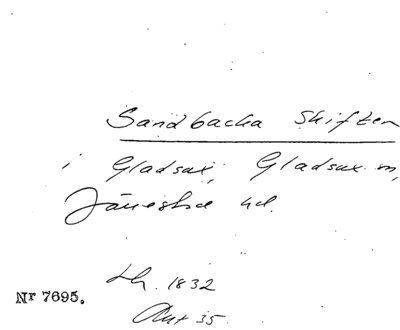 Sandbacka Skiften
i Gladsax, Gladsax sn,
Järrestad hd.
1832
Akt 35
Nr 7695.